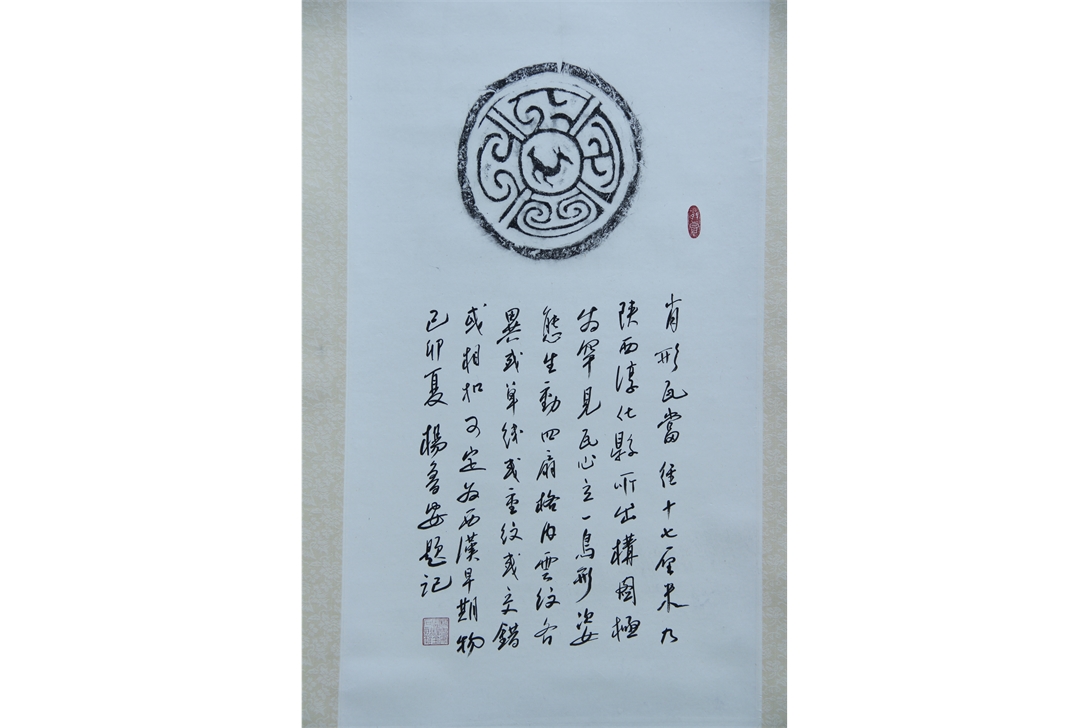 肖形瓦當徑十七厘米乃
陝西淳化縣所出構圖極
為罕見瓦心立一鳥形姿
態生動四扇格内雲紋各
異或單綫或重紋或交錯
或相扣可定為西漢早期物
己卯夏楊魯安題記